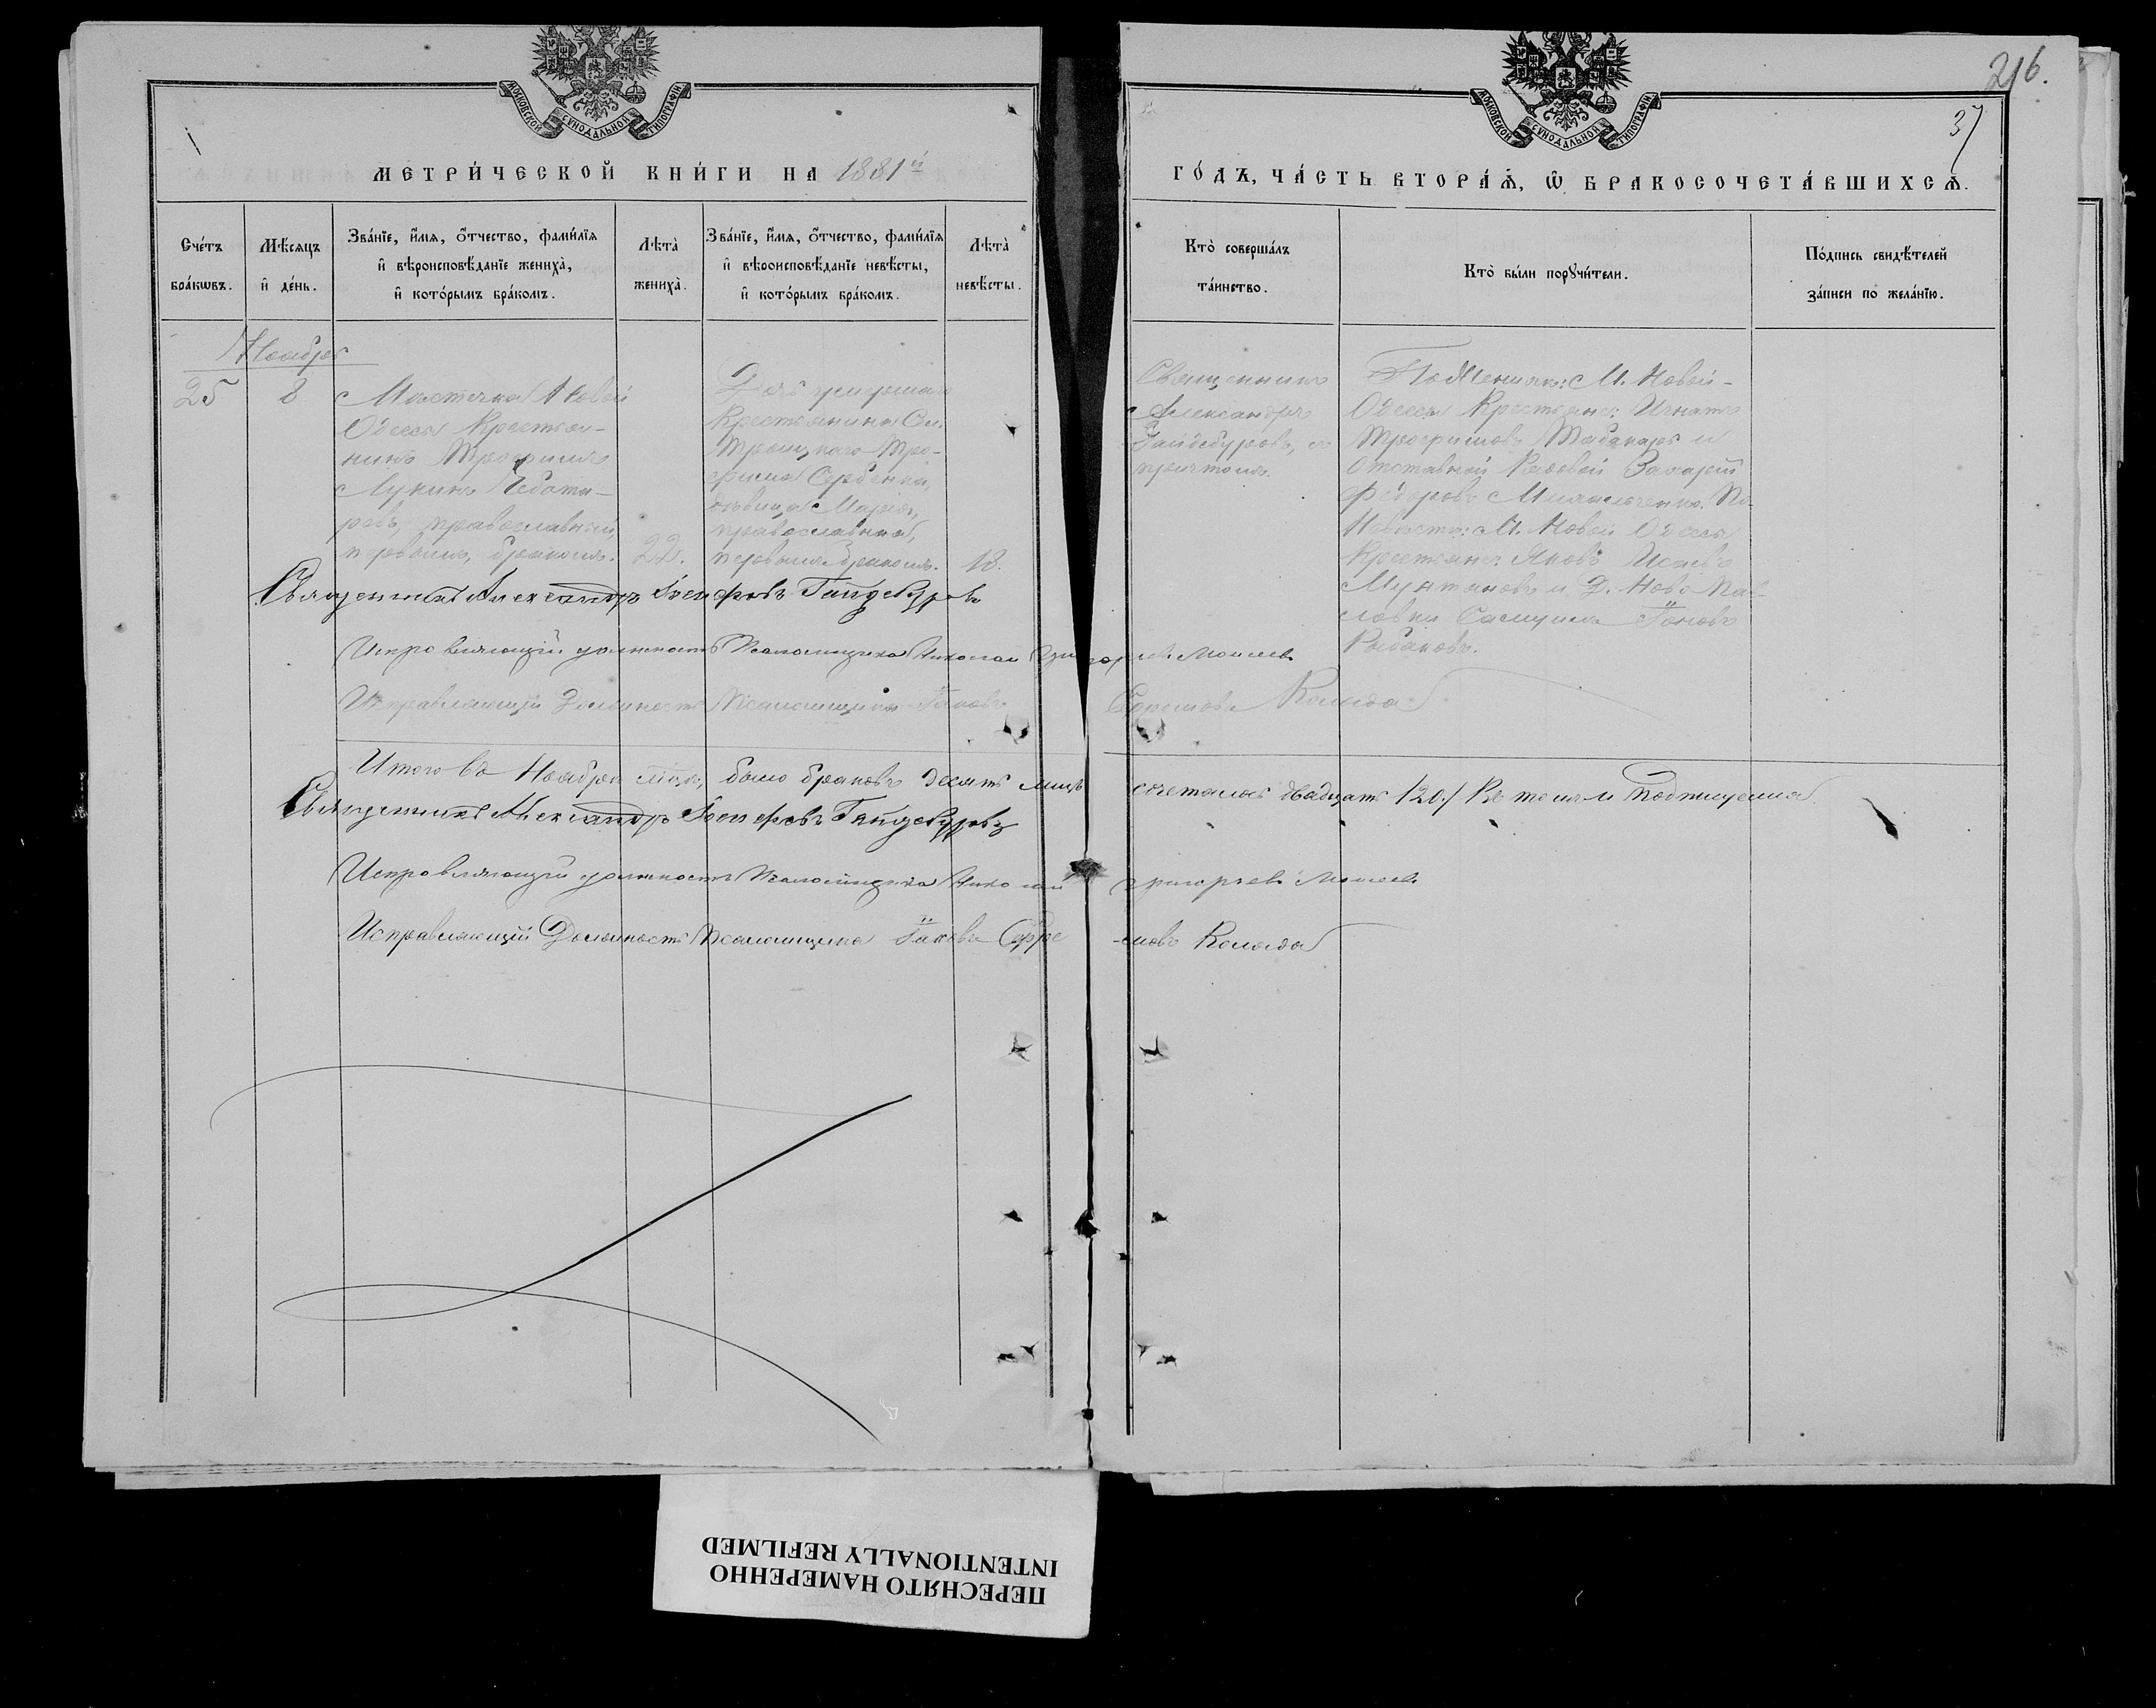 МОСКОВСКОЙ СѴНОДАЛЬНОЙ ТИПОГРАФІИ
МОСКОВСКОЙ СѴНОДАЛЬНОЙ ТИПОГРАФІИ
216.
37
МЕТРИ́ЧЕСКОЙ КНИ́ГИ НА 1881й
ГО́ДЪ, ЧА́СТЬ ВТОРА́Ѧ, Ѡ҆ БРАКОСОЧЕТА́ВШИХСѦ.
Сче́тъ
бра́кѡвъ.
Мѣ́сяцъ
и҆ де́нь.
Зва́нїе, и҆́мѧ, ѻ҆́тчество, фами́лїѧ
и҆ вѣроисповѣ́данїе жениха̀,
и҆ кото́рымъ бра́комъ.
Лѣта̀
жениха̀.
Зва́нїе, и҆́мѧ, ѻ҆́тчество, фами́лїѧ
и҆ вѣроисповѣ́данїе невѣ́сты,
и҆ кото́рымъ бра́комъ.
Лѣта̀
невѣ́сты.
Кто̀ соверша́лъ
та́инство.
Кто̀ бы́ли порꙋчи́тели.
По́дпись свидѣ́телей
за́писи по жела́нїю.
Ноября
25
8
Мѣстечка Новой
Одессы Крестья-
нинъ Трофимъ
Лукинъ Чебота-
ревъ, православный,
первымъ бракомъ.
22.
Дочь умершаго
Крестьянина Сл.
Троицкаго Тро-
фима Сербенка,
дѣвица Марія,
православная,
первымъ бракомъ.
18.
Священникъ
Александръ
Гайдебуровъ, съ
причтомъ.
По Женихѣ: М. Новой-
Одессы Крестьяне: Игнатъ
Трофимовъ Табакарь и
Отставной Рядовой Захарій
Федоровъ Михальченко. По
Невѣстѣ: М. Новой Одессы
Крестьяне: Яковъ Исаевъ
Мунтяновъ и Д. Ново Пав-
ловки Самуилъ Іоновъ
Рыбаковъ.
Священникъ Александръ Іосифовъ Гайдебуровъ
Исправляющій должность Псаломщика Николай Григорьев Моисеев
Исправляющій Должность Псаломщика Іаковъ Ефремовъ Коляда
Итого въ Ноябрѣ м-цѣ, было браковъ десять лицъ сочеталось двадцать /20./ Къ то и подписуемся
Священникъ Александръ Іосифовъ Гайдебуровъ
Исправляющій должность Псаломщика Николай Григорьев Моисеев
Исправляющій Должность Псаломщика Іаковъ Ефре-мовъ Коляда
ПЕРЕСНЯТО НАМЕРЕННО
INTENTIONALLY REFILMED